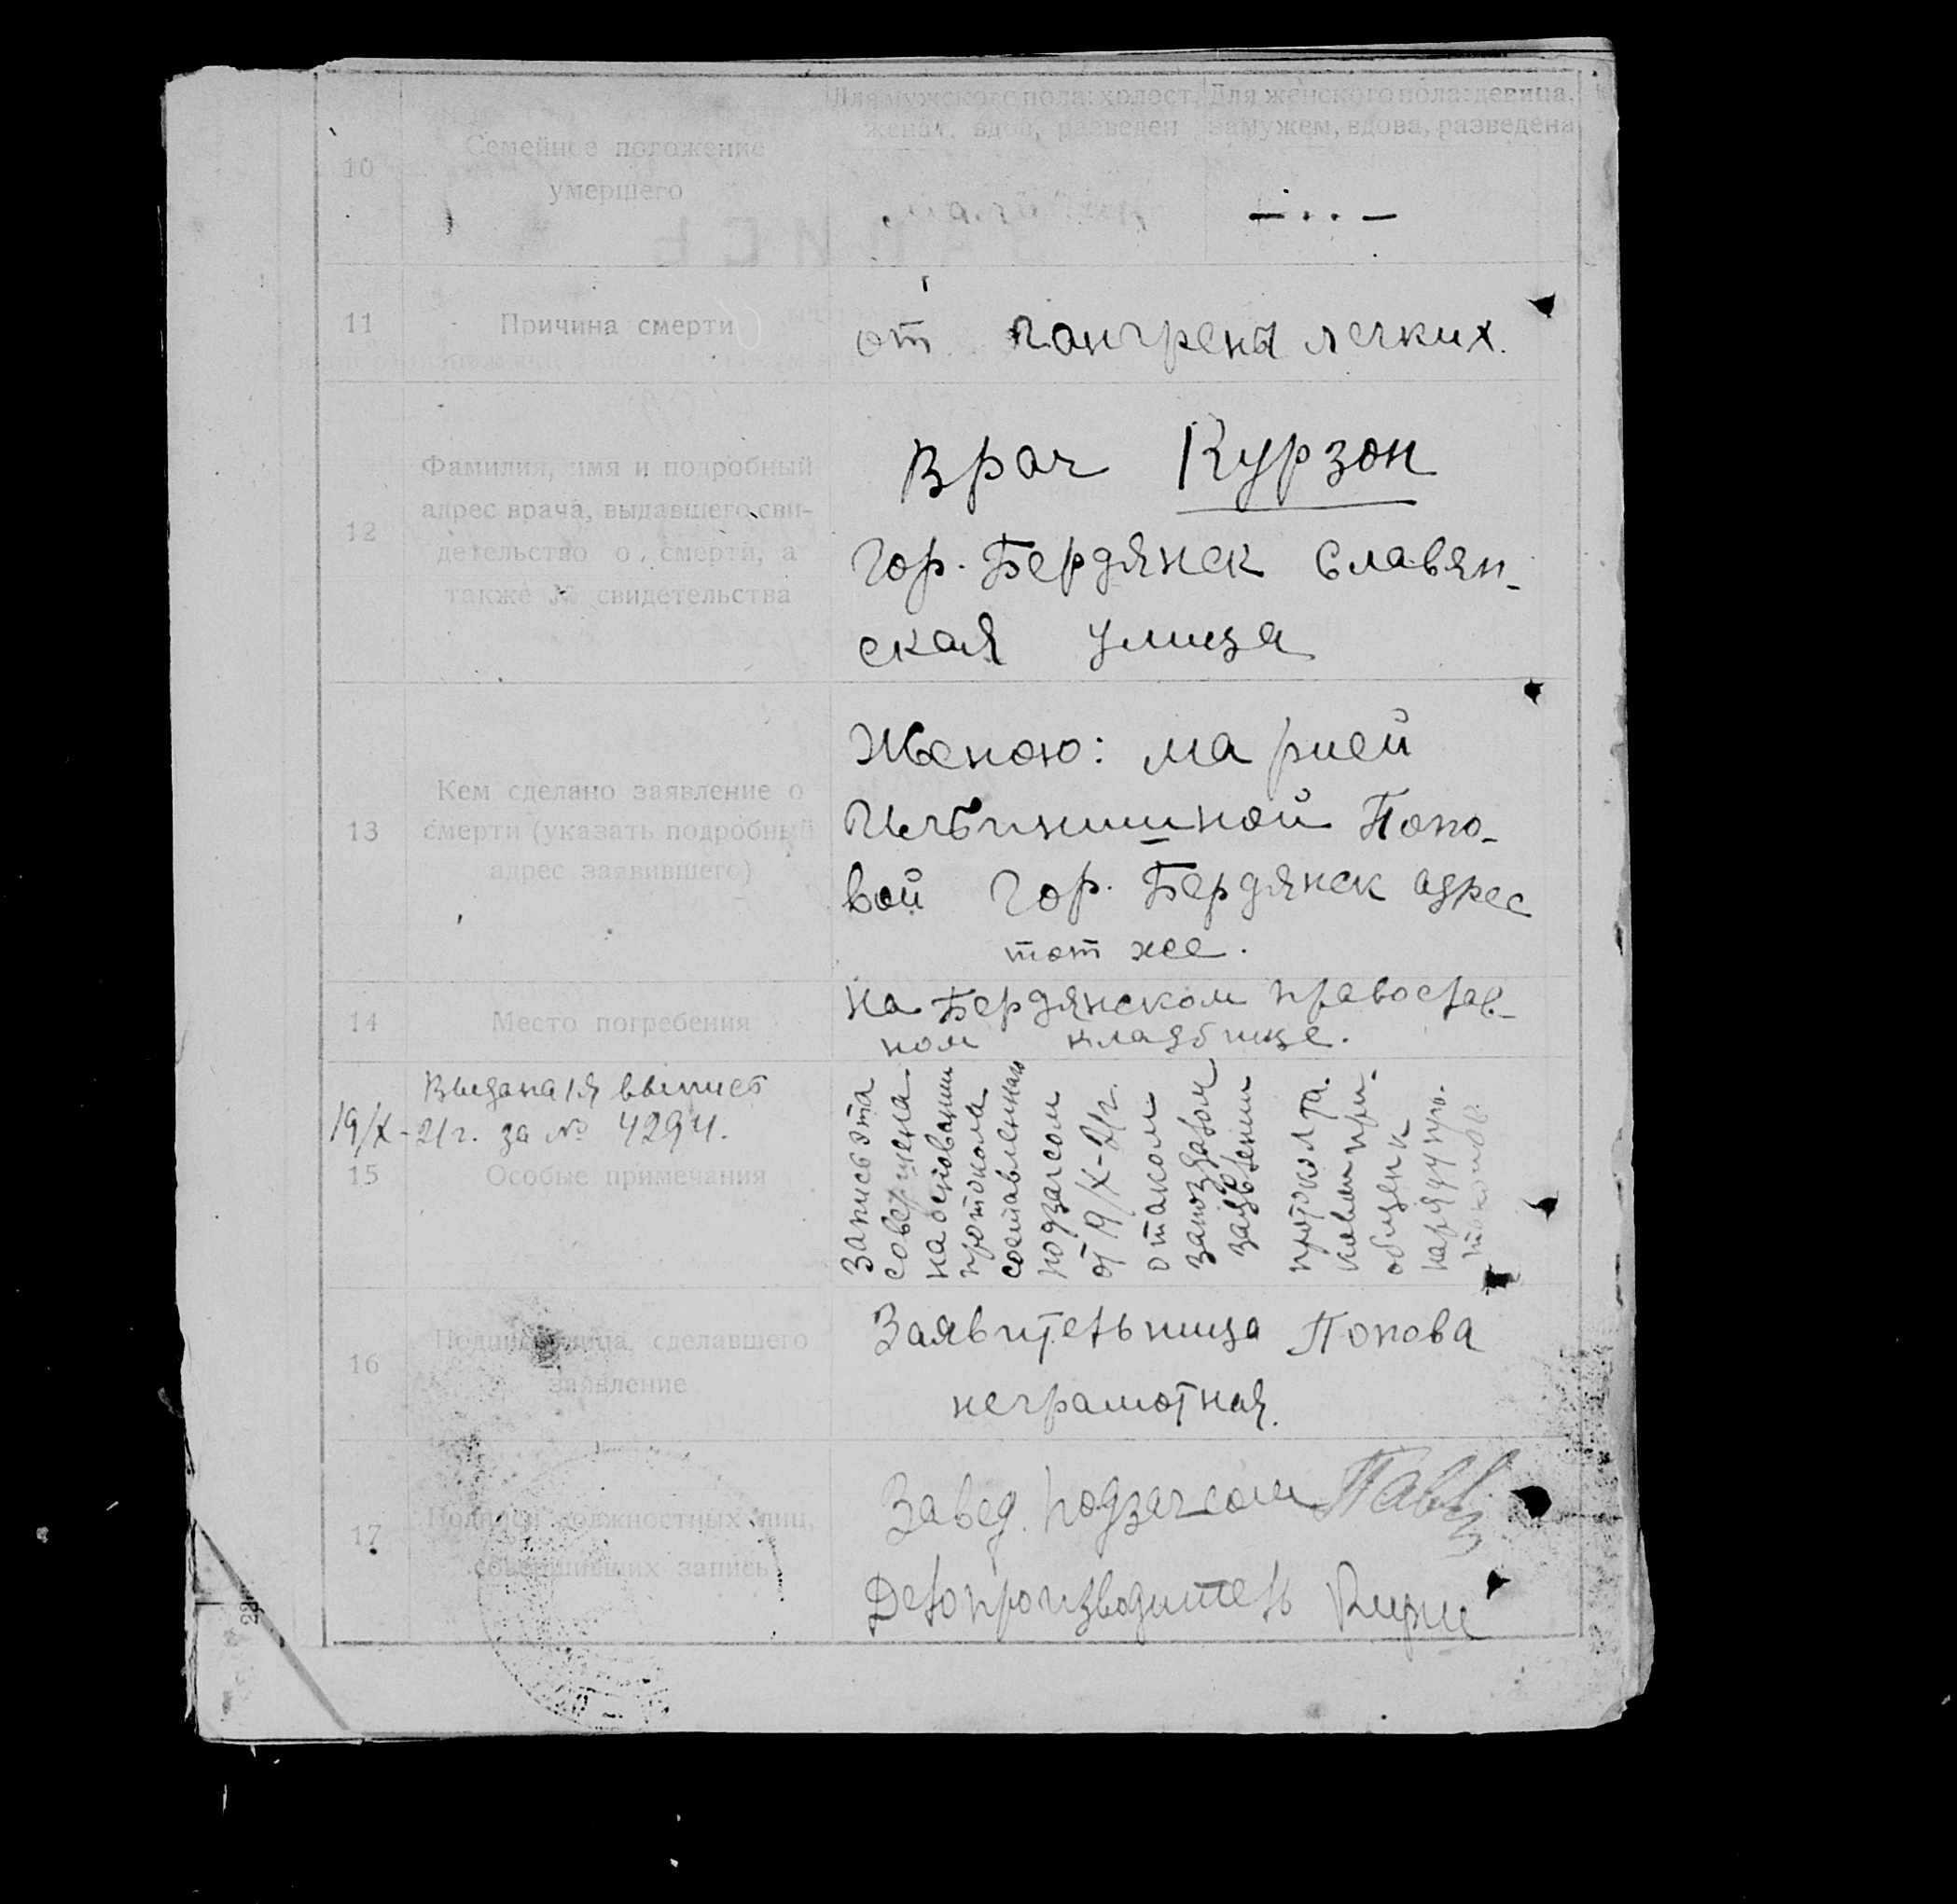 Для мужского пола: холост, женат, вдов, разведен
Для женского пола: девица, замужем, вдова, разведена
10
Семейное положение
умершего
— . . —
11
Причина смерти
от гангрены легких.
12
Фамилия, имя и подробный
адрес врача, выдавшего сви-
детельство о смерти, а
также № свидетельства
Врач Курзон
Гор. Бердянск Славян-
ская улица
13
Кем сделано заявление о
смерти (указать подробный
адрес заявившего)
Женою: Марией
Попо-
вой Гор. Бердянск адрес
тот же.
14
Место погребения
на Бердянском православ-
ном кладбище.
Выдана 1я выпись
19/X-21г. за № 4294.
15
Особые примечания
Запись эта
совершена
на основании
протокола
составленнаго
подзагсом
от 19/X-21г.
о таком
запоздалом
заявлении
протокол та.
ковым при.
общен к
наряду про.
токолов.
16
Подпись лица, сделавшего
заявление
Заявительница Попова
неграмотная.
17
Подписи должностных лиц,
совершивших запись
Завед. подзагсом
Делопроизводитель